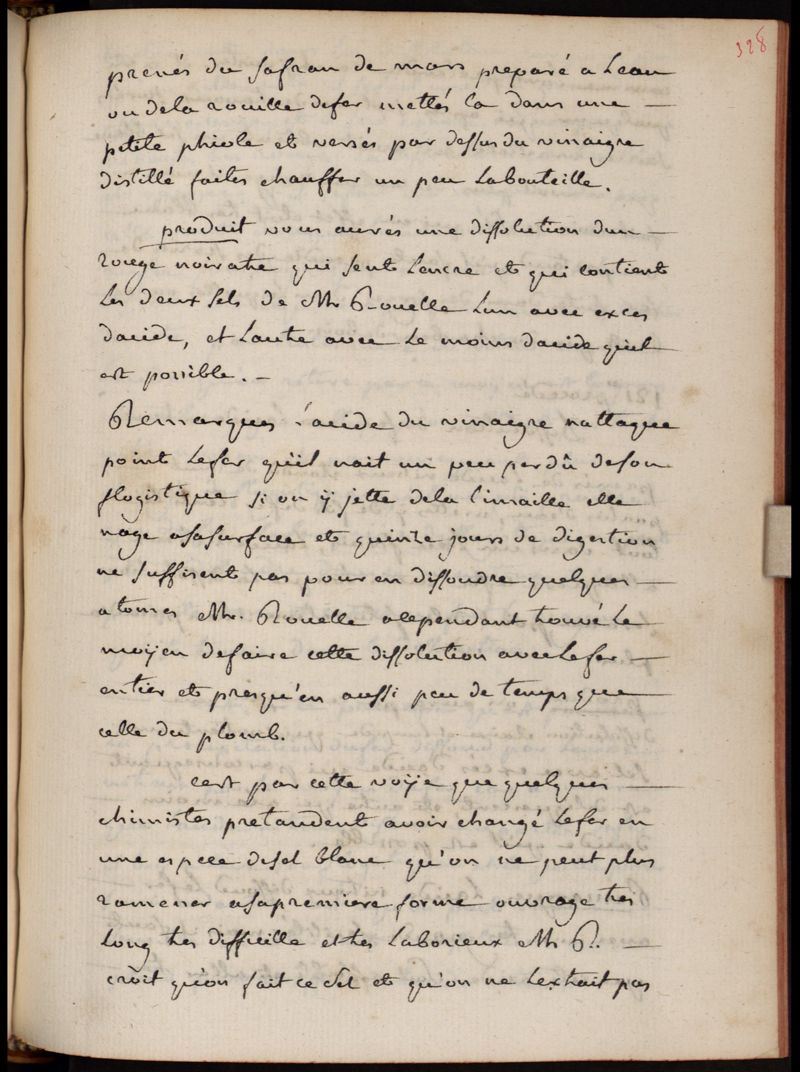 328
prenés du safran de mars preparé a Leau
ou dela rouille defer mettés la dans une —
petite phiole et versés par dessus du vinaigre
distillé faites chauffer un peu Labouteille.
produit vous aurés une dissolution dun —
rouge noiratre qui sent Lencre et qui contient
Les deux sels de Mr Rouelle Lun avec exces
dacide, et Lautre avec Le moins dacide quil
est possible. —
Remarques l'acide du vinaigre nattaque
point Lefer qu'il nait un peu perdû deson
flogistique si on ÿ jette dela limaille elle
nage asasurface et quinze jours de digestion
ne suffisent pas pour en dissoudre quelques —
atomes Mr. Rouelle acependant trouvé Le
moÿen defaire cette dissolution avec Lefer —
entier et presqu'en aussi peu de temps que
celle du plomb.
cest par cette voÿe que quelques —
chimistes pretandent avoir changé Lefer en
une espece desel blanc qu'on ne peut plus
ramener asapremiere forme ouvrage tres
Long tres difficille et tres Laborieux Mr R.. —
croit qu'on fait ce sel et qu'on ne Lextrait pas